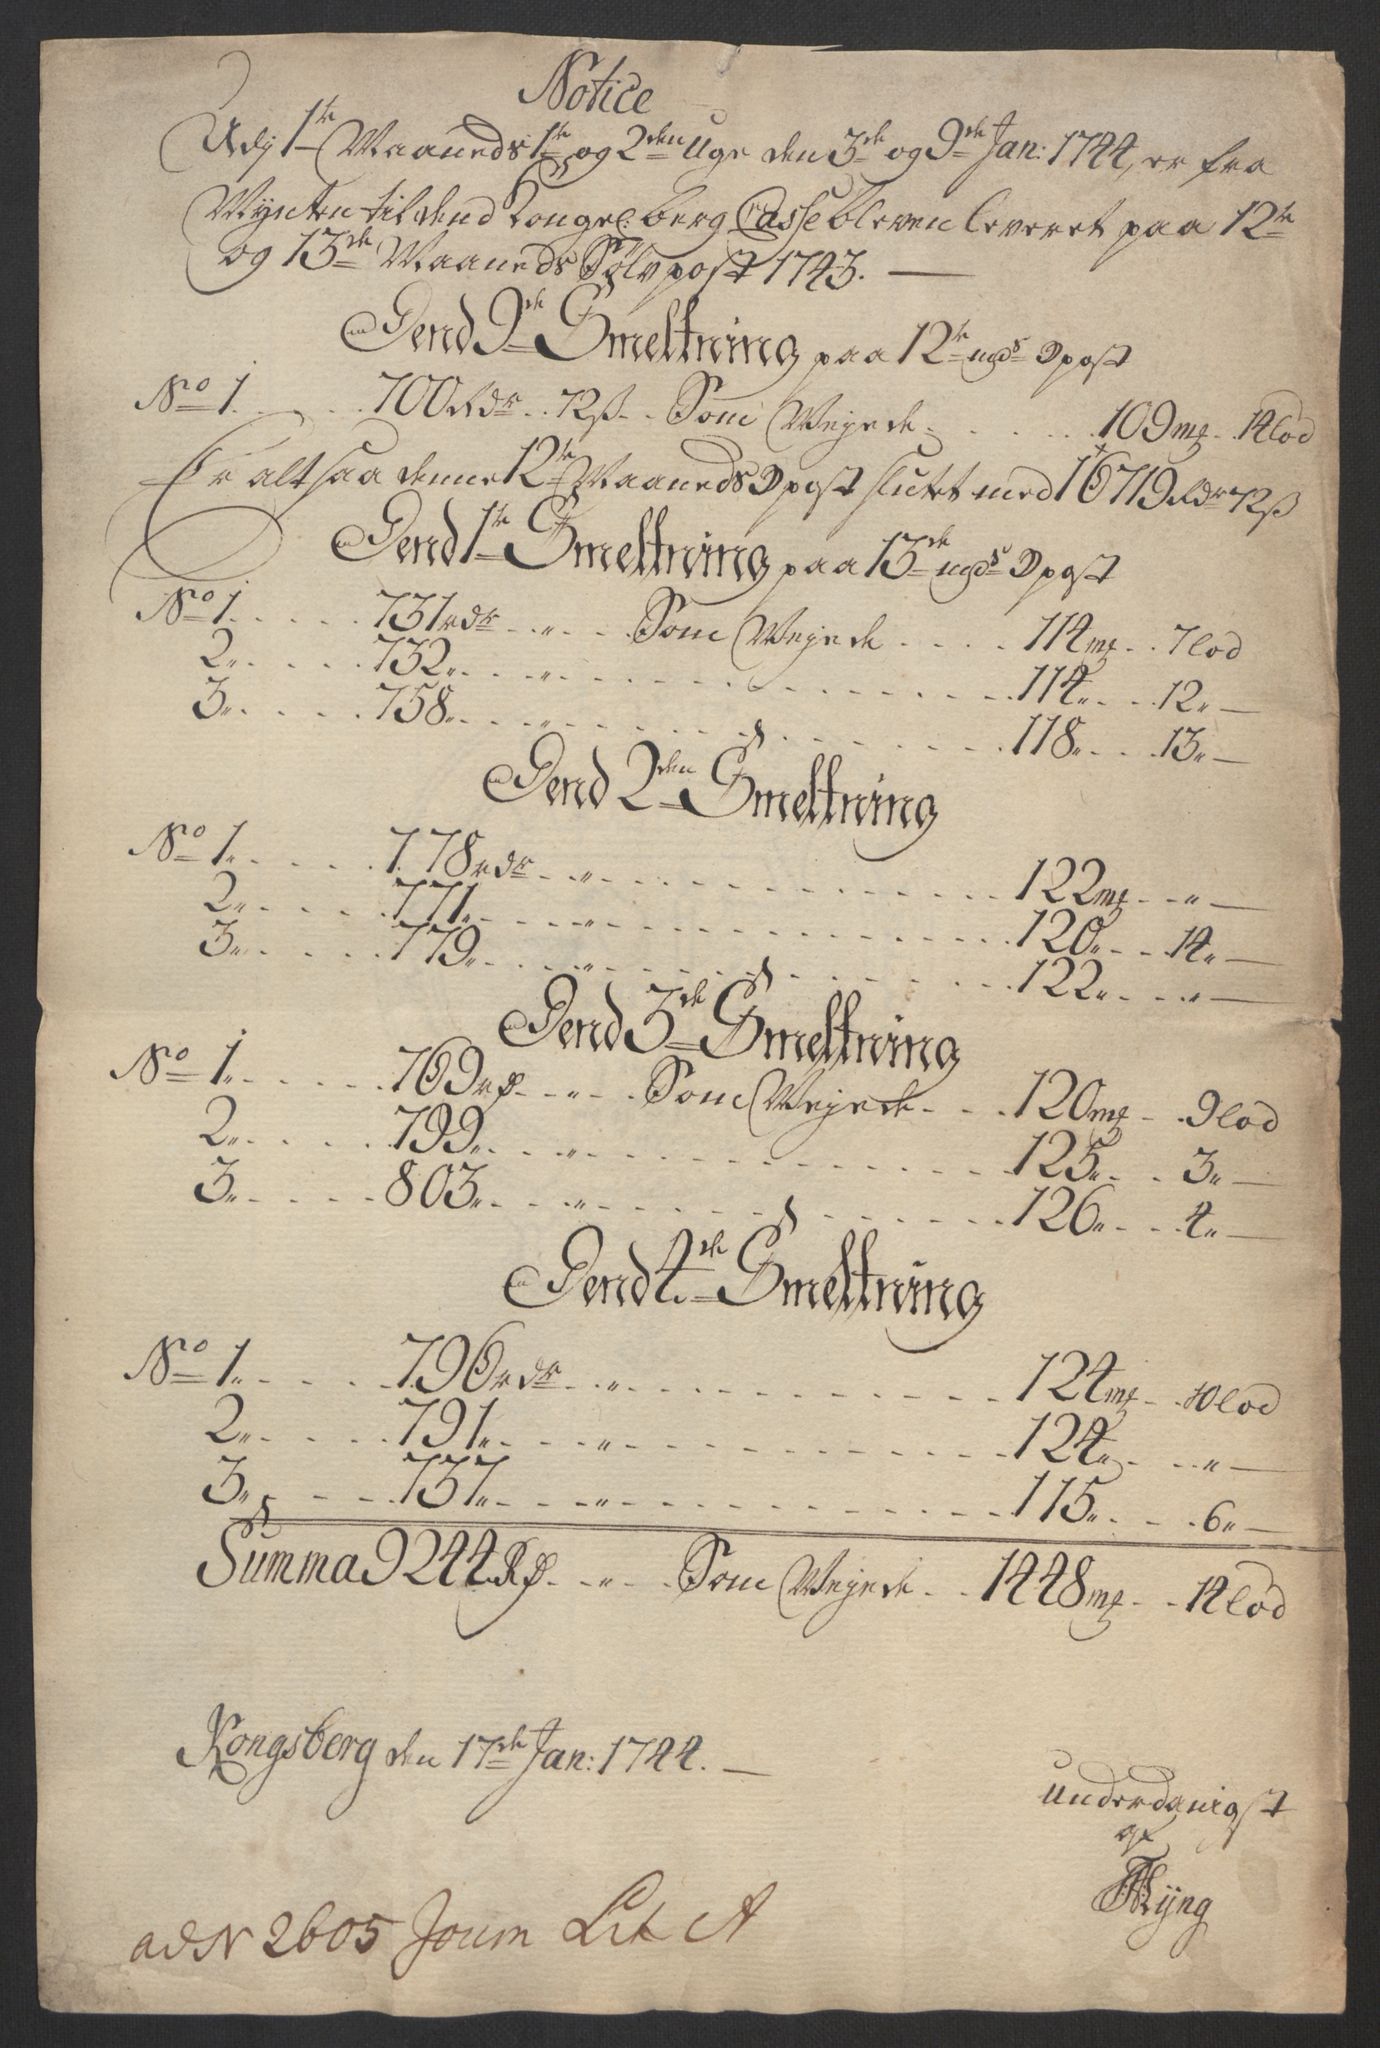 Notice
Udj 1te Maaneds 1te og 2den Uge den 3de og 9de Jan: 1744, er fra
Mynten til dend Kongel: berg Casse bleven leveret paa 12te
og 13de Maaneds Sølvpost 1743. —
Dend 9de Smeltning paa 12te mds ☽post
No 1. . . . 700 Rdr . . 72ß . . Som Vejede . . . . . 109 mk . . 14 lod
Er altsaa denne 12te Maaneds ☽post slutet med 16719 Rdr 72ß
Dend 1te Smeltning paa 13de mds ☽post
No 1. . . . . 731 rdr . . „ . . . Som Vejede . . . . 114 mk . . 7 lod
2„ . . . . 732„ . . . „ . . . . . . . . . . 114„ . . . 12„ —
3„ . . . . 758„ . . . „ . . . . . . . . . . 118„ . . . 13„ —
Dend 2den Smeltning
No 1„ . . . . 778 rdr . . „ . . . . . . . . . . 122 mk . . „ —
2„ . . . . 771„ . . . „ . . . . . . . . . . 120„ . . . 14„ —
3„ . . . . 779„ . . . „ . . . . . . . . . . 122„ . . . „ —
Dend 3de Smeltning
No 1„ . . . . 769 rdr . . „ . . . Som Vejede . . . 120 mk . . 9 lod
2„ . . . . 799„ . . . „ . . . . . . . . . . 125„ . . . 3„ —
3„ . . . . 803„ . . . „ . . . . . . . . . . 126„ . . . 4„ —
Dend 4de Smeltning
No 1„ . . . . 796 rdr . . „ . . . . . . . . . . 124 mk . . 10 lod
2„ . . . . 791„ . . . „ . . . . . . . . . . 124„ . . . „ —
3„ . . . . 737„ . . . „ . . . . . . . . . . 115„ . . . 6„ —
Summa 9244 Rdr . . „ . . . Som Vejede . . 1448 mk . . 14 lod
Kongsberg den 17de Jan: 1744. —
Underdanigst
af
Myng
ad N 2605 Journ Lit A